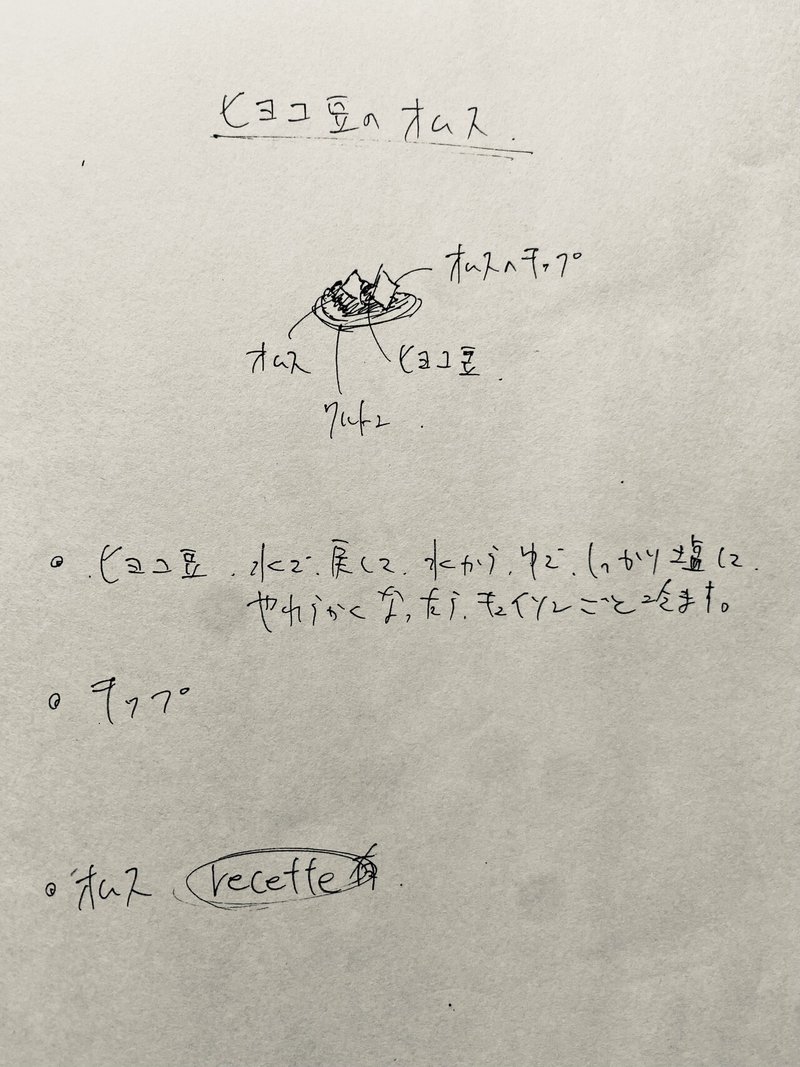 ヒヨコ豆のオムス
オムスへチップ
オムス
ヒヨコ豆
ワルトン
ヒヨコ豆 水で戻して、水から、ゆで、しっかり塩して
やわらかくなったら、キュイソンごと冷ます。
チップ
オムス recette有